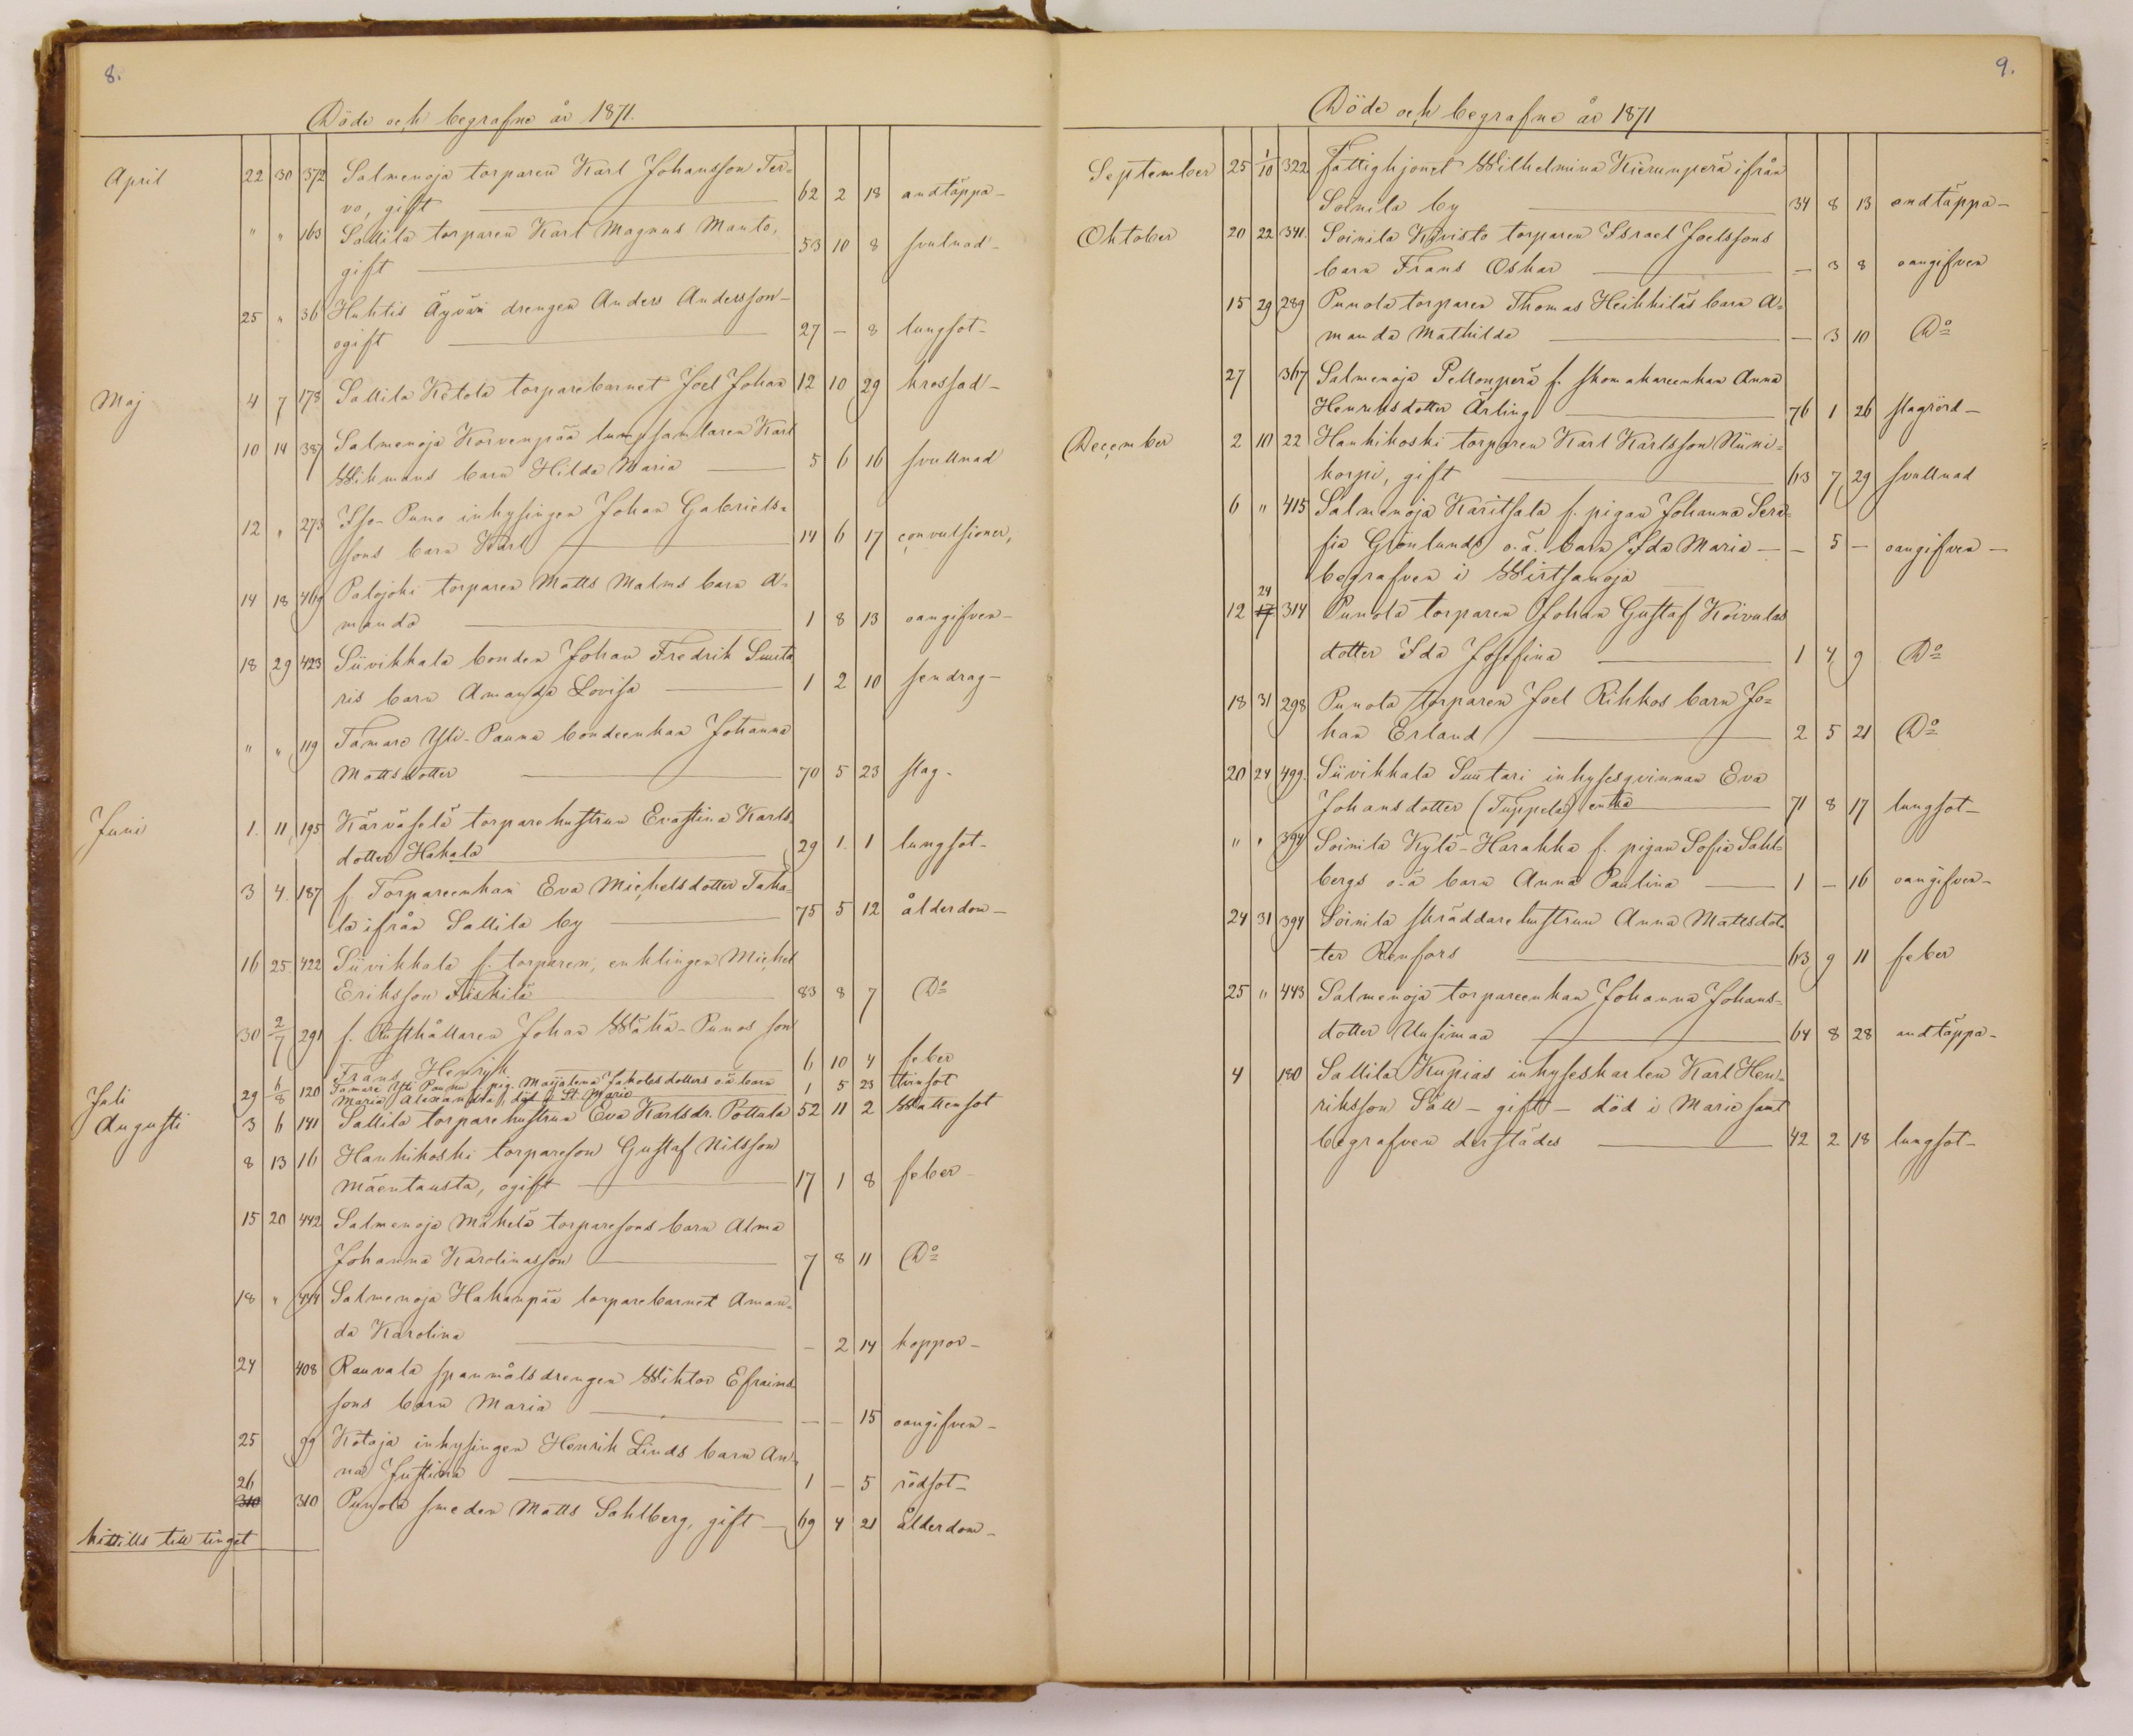 8.
Döde och begrafne år 1871.
April 22 30 372 Salmenoja torparen Karl Johansson Ter-
vo, gift 62 2 18 andtäppa-
" " 163 Sallila torparen Karl Magnus Manto,
gift 53 10 8 svulnad-
25 " 36 Huhtis Äyväri drengen Anders Andersson-
ogift 27 - 8 lungsot-
Maj 4 7 178 Sallila Ketola torparebarnet Joel Johan 12 10 29 krossad-
10 14 387 Salmenoja Korvenpää lumpsamlaren Karl
Wikmans barn Hilda Maria 5 6 16 svullnad
12 " 273 Iso-Puno inhysingen Johan Gabriels-
sons barn Karl 14 6 17 convulsioner,
14 18 469 Palojoki torparen Matts Malms barn A-
manda 1 8 13 oangifven-
18 29 423 Siivikkala bonden Johan Fredrik Suuta
ris barn Amanda Lovisa 1 2 10 sendrag-
" " 119 Tamare Yli-Pauna bondeenkan Johanna
Mattsdotter 70 5 23 slag-
Juni 1. 11 195 Kärväselä torparehustrun Evastina Karls-
dotter Hakala 29 1. 1 lungsot-
3 4. 187 f. Torpareenkan Eva Michelsdotter Taka-
la ifrån Sallila by 75 5 12 ålderdom-
16 25. 422 Siivikkala f. torparen, enklingen Michel
Eriksson Fiskilä 83 8 7 Do
30 2/7 291 f. Rusthållaren Johan Wähä-Punos son
Frans Henrik 6 10 4 feber
Juli 29 6/8 120 Tamare Yli Paunu f. pig. Maijalena Jakobsdotters oä barn 1 5 23 tvinsot
Maria Alexandra, död i St Marie
Augusti 3 6 141 Sallila torparehustrun Eva Karlsdr. Pottala 52 11 2 Wattensot
8 13 16 Hankikoski torpareson Gustaf Nilsson
Mäentausta, ogift 17 1 8 feber
15 20 442 Salmenoja Mäkelä torparesons barn Alma
Johanna Karolinasson 7 8 11 Do
18 " 444 Salmenoja Hakanpää torparebarnet Aman-
da Karolina - 2 14 koppor-
24 408 Rauvala spanmålsdrengen Wiktor Efraims-
sons barn Maria - - 15 oangifven-
25 99 Kotaja inhysingen Henrik Linds barn An-
na Justina 1 - 5 rödsot-
26
310 310 Punola smeden Matts Sahlberg, gift - 69 4 21 ålderdom-
hittills till tinget
9.
Döde och begrafne år 1871
September 25 1/10 322 Fattighjonet Wilhelmina Kierunperä ifrån
Soinila by 34 8 13 andtäppa-
Oktober 20 22 341. Soinila Kivisto torparen Israel Joelssons
barn Frans Oskar - 3 8 oangifven
15 29 289 Punola torparen Thomas Heikkiläs barn A-
manda Mathilda - 3 10 Do
27 367 Salmenoja Pellonperä f. skomakareenkan Anna
Henriksdotter Ärling 76 1 26 slagrörd-
December 2 10 22 Hankikoski torparen Karl Karlsson Niini-
korpi, gift 63 7 29 svullnad
6 " 415 Salmenoja Karitsala f. pigan Johanna Sera-
fia Grönlunds o.ä. barn Ida Maria - - 5 - oangifven-
begrafven i Wirtsanoja
24
12 17 314 Punola torparen Johan Gustaf Koivulas
dotter Ida Josefina 1 4 9 Do
18 31 298 Punola torparen Joel Rikkos barn Jo-
han Erland 2 5 21 Do
20 24 499. Siivikkala Suutari inhysesqvinnan Eva
Johansdotter (Tuppela) enka 71 8 17 lungsot-
" " 394 Soinila Kylä-Harakka f. pigan Sofia Sahl-
bergs o.ä barn Anna Paulina 1 - 16 oangifven-
24 31 394 Soinila skräddarehustrun Anna Mattsdot-
ter Renfors 63 9 11 feber
25 " 443 Salmenoja torpareenkan Johanna Johans-
dotter Uusimaa 64 8 28 andtäppa-
4 180 Sallila Kupias inhyseskarlen Karl Hen-
riksson Säll - gift - död i Marie samt
begrafven derstädes 42 2 18 lungsot-